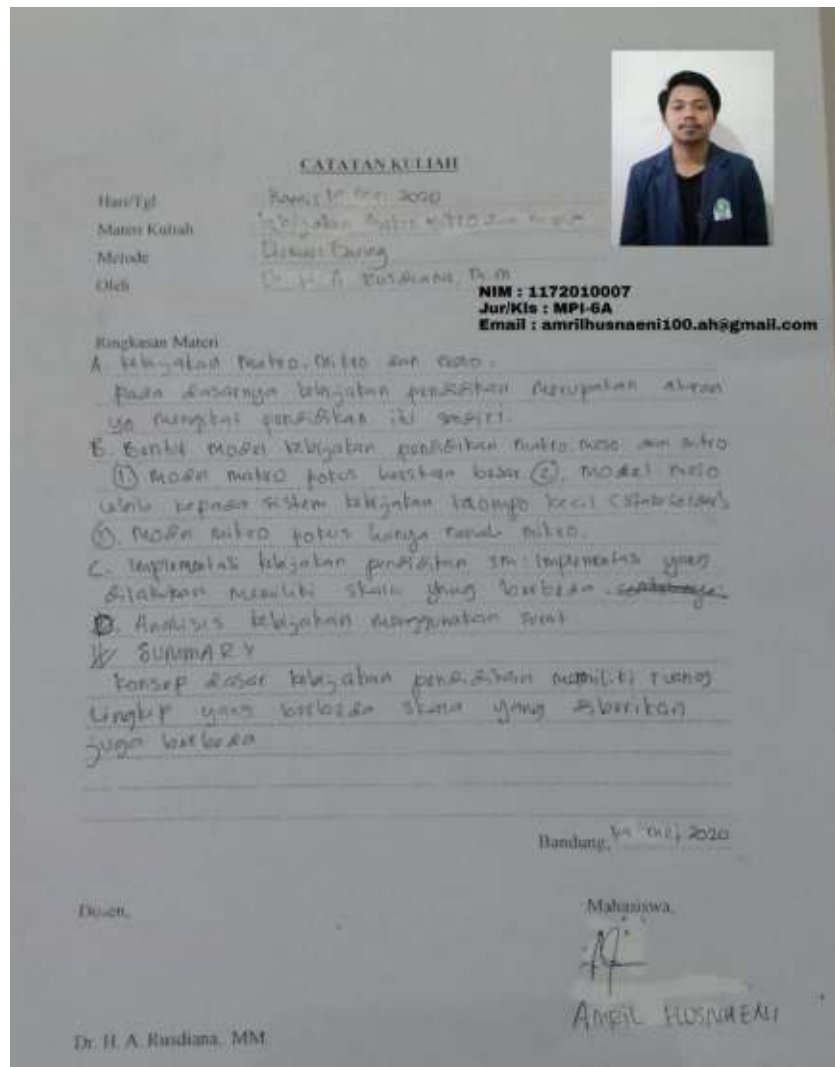 CATATAN KULIAH
Hari/Tgl Kamis 2020
Materi Kuliah kebijakan
Metode Diskusi Daring
Oleh Dr. H. A. Rusdiana, M.M
NIM : 1172010007
Jur/Kls : MPI-6A
Email : amrilhusnaeni100.ah@gmail.com
Ringkasan Materi
A. kebijakan makro, mikro dan meso.
Pada dasarnya kebijakan pendidikan merupakan aturan
yg mengikat pendidikan itu sendiri.
B. Bentuk model kebijakan pendidikan makro meso dan mikro
① model makro fokus besar ②. model meso
kepada sistem kebijakan kecil (stakeholder)
model mikro fokus hanya ranah mikro.
C. Implementasi kebijakan pendidikan Implementasi yang
dilakukan memiliki skala yang berbeda
D. Analisis kebijakan menggunakan
SUMMARY
Konsep dasar kebijakan pendidikan memiliki ruang
lingkup yang berbeda skala yang diberikan
juga berbeda
Bandung, 14 mei 2020
Dosen, Mahasiswa,
AMRIL HUSNAENI
Dr. H. A. Rusdiana, MM